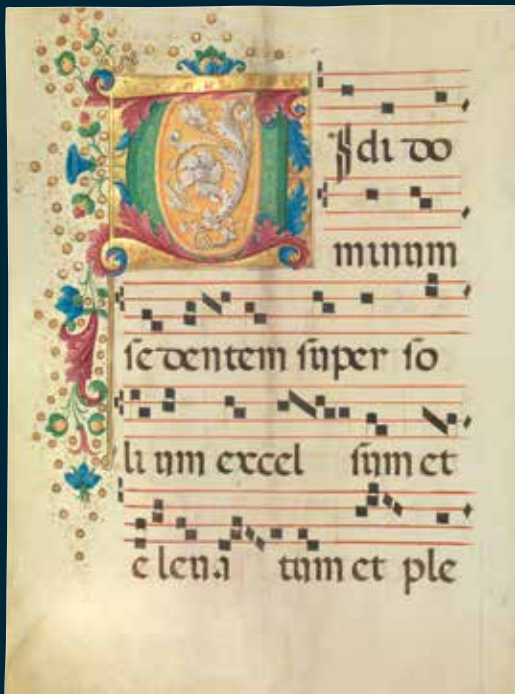 Vidi do
minum
sedentem super so
lium excel sum et
elena tum et ple